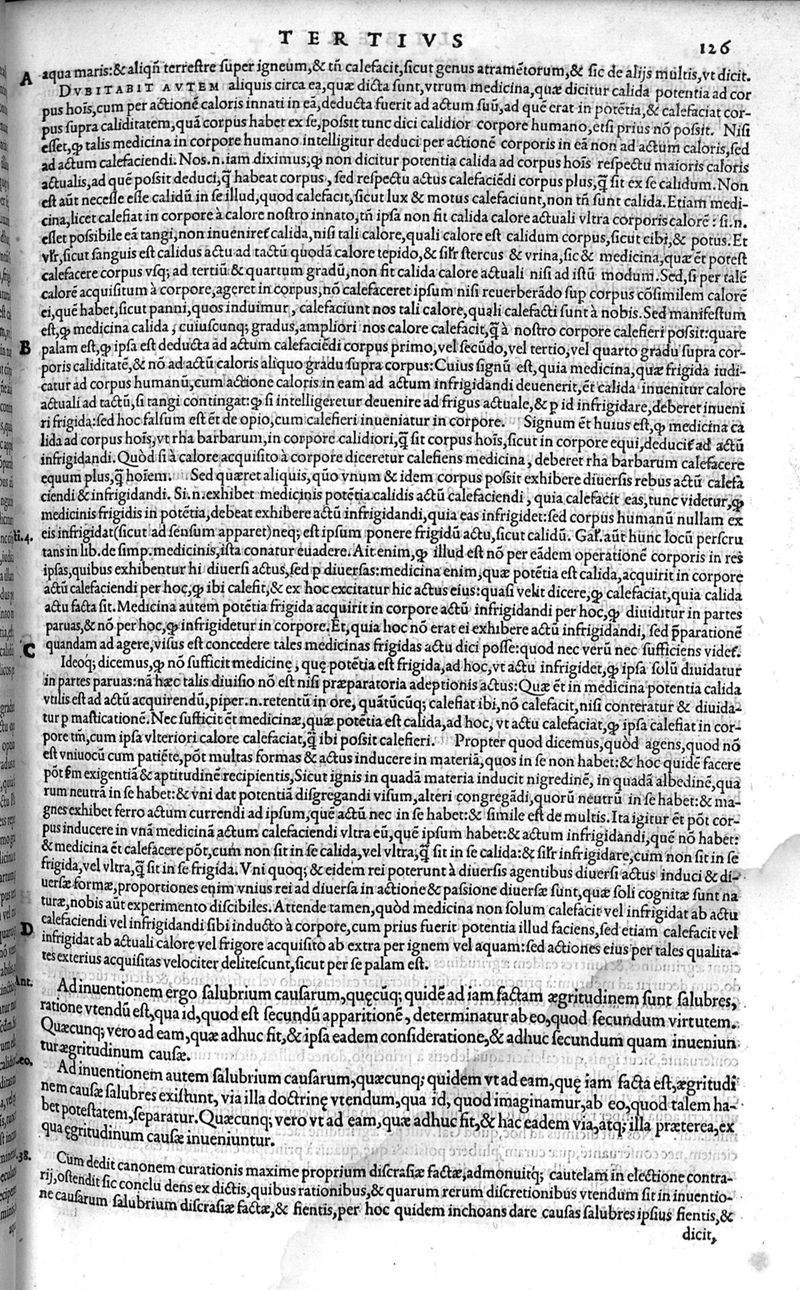 TERTIVS
126
A aqua maris:& aliqñ terrestre super igneum,& tñ calefacit,sicut genus atramẽtorum,& sic de alijs multis,vt dicit.
DVBITABIT AVTEM aliquis circa ea,quæ dicta sunt,vtrum medicina,quæ dicitur calida potentia ad cor
pus hoĩs,cum per actionẽ caloris innati in eã,deducta fuerit ad actum suũ,ad quẽ erat in potẽtia,& calefaciat cor-
pus supra caliditatem,quã corpus habet ex se,possit tunc dici calidior corpore humano,etsi prius nõ possit. Nisi
esset,ꝙ talis medicina in corpore humano intelligitur deduci per actionẽ corporis in eã non ad actum caloris,sed
ad actum calefaciendi. Nos.n.iam diximus,ꝙ non dicitur potentia calida ad corpus hoĩs respectu maioris caloris
actualis,ad quẽ possit deduci,q̃ habeat corpus, sed respectu actus calefaciẽdi corpus plus,q̃ sit ex se calidum. Non
est aũt necesse esse calidũ in se illud,quod calefacit,sicut lux & motus calefaciunt,non tñ sunt calida. Etiam medi-
cina,licet calefiat in corpore à calore nostro innato,tñ ipsa non fit calida calore actuali vltra corporis calorẽ: si.n.
esset possibile eã tangi,non inueniret calida,nisi tali calore,quali calore est calidum corpus,sicut cibi,& potus. Et
vlr̃,sicut sanguis est calidus actu ad tactũ quodã calore tepido,& silr̃ stercus & vrina,sic & medicina,quæ ẽt potest
calefacere corpus vsq; ad tertiũ & quartum gradũ,non fit calida calore actuali nisi ad istũ modum. Sed,si per talẽ
calorẽ acquisitum à corpore,ageret in corpus,nõ calefaceret ipsum nisi reuerberãdo sup corpus cõsimilem calorẽ
ei,quẽ habet,sicut panni,quos induimur, calefaciunt nos tali calore,quali calefacti sunt à nobis. Sed manifestum
est,ꝙ medicina calida, cuiuscunq; gradus,ampliori nos calore calefacit,q̃ à nostro corpore calefieri possit:quare
B palam est,ꝙ ipsa est deducta ad actum calefaciẽdi corpus primo,vel secũdo,vel tertio,vel quarto gradu supra cor-
poris caliditatẽ,& nõ ad actũ caloris aliquo gradu supra corpus:Cuius signũ est,quia medicina,quæ frigida iudi-
catur ad corpus humanũ,cum actione caloris in eam ad actum infrigidandi deuenerit,ẽt calida inuenitur calore
actuali ad tactũ,si tangi contingat:ꝙ si intelligeretur deuenire ad frigus actuale,& p id infrigidare,deberet inueni
ri frigida:sed hoc falsum est ẽt de opio,cum calefieri inueniatur in corpore. Signum ẽt huius est,ꝙ medicina ca
lida ad corpus hoĩs,vt rha barbarum,in corpore calidiori,q̃ sit corpus hoĩs,sicut in corpore equi,deducit̃ ad actũ
infrigidandi. Quòd si à calore acquisito à corpore diceretur calefiens medicina, deberet rha barbarum calefacere
equum plus,q̃ hoĩem. Sed quæret aliquis,quõ vnum & idem corpus possit exhibere diuersis rebus actũ calefa
ciendi & infrigidandi. Si.n.exhibet medicinis potẽtia calidis actũ calefaciendi, quia calefacit eas,tunc videtur,ꝙ
medicinis frigidis in potẽtia,debeat exhibere actũ infrigidandi,quia eas infrigidet:sed corpus humanũ nullam ex
eis infrigidat(sicut ad sensum apparet)neq; est ipsum ponere frigidũ actu,sicut calidũ. Gal̃.aũt hunc locũ perscru
tans in lib.de simp.medicinis,ista conatur euadere. Ait enim,ꝙ illud est nõ per eãdem operationẽ corporis in res
ipsas,quibus exhibentur hi diuersi actus,sed p diuersas:medicina enim,quæ potẽtia est calida,acquirit in corpore
actũ calefaciendi per hoc,ꝙ ibi calefit,& ex hoc excitatur hic actus eius:quasi velit dicere,ꝙ calefaciat,quia calida
actu facta sit. Medicina autem potẽtia frigida acquirit in corpore actũ infrigidandi per hoc,ꝙ diuiditur in partes
paruas,& nõ per hoc,ꝙ infrigidetur in corpore. Et,quia hoc nõ erat ei exhibere actũ infrigidandi, sed p̃parationẽ
C quandam ad agere,visus est concedere tales medicinas frigidas actu dici posse:quod nec verũ nec sufficiens videt̃.
Ideoq; dicemus,ꝙ nõ sufficit medicinę, quę potẽtia est frigida,ad hoc,vt actu infrigidet,ꝙ ipsa solũ diuidatur
in partes paruas:nã hæc talis diuisio nõ est nisi præparatoria adeptionis actus:Quæ ẽt in medicina potentia calida
vtilis est ad actũ acquirendũ,piper.n.retentũ in ore, quãtũcũq; calefiat ibi,nõ calefacit,nisi conteratur & diuida-
tur p masticationẽ. Nec sufficit ẽt medicinæ,quæ potẽtia est calida,ad hoc, vt actu calefaciat,ꝙ ipsa calefiat in cor-
pore tm̃,cum ipsa vlteriori calore calefaciat,q̃ ibi possit calefieri. Propter quod dicemus,quòd agens,quod nõ
est vniuocũ cum patiẽte,põt multas formas & actus inducere in materiã,quos in se non habet:& hoc quidẽ facere
põt fm exigentiã & aptitudinẽ recipientis,Sicut ignis in quadã materia inducit nigredinẽ, in quadã albedinẽ,qua
rum neutrã in se habet:& vni dat potentiã disgregandi visum,alteri congregãdi,quorũ neutrũ in se habet:& ma-
gnes exhibet ferro actum currendi ad ipsum,quẽ actũ nec in se habet:& simile est de multis. Ita igitur ẽt põt cor-
pus inducere in vnã medicinã actum calefaciendi vltra eũ,quẽ ipsum habet:& actum infrigidandi,quẽ nõ habet:
& medicina ẽt calefacere põt,cum non sit in se calida,vel vltra,q̃ sit in se calida:& silr̃ infrigidare,cum non sit in se
frigida,vel vltra,q̃ sit in se frigida. Vni quoq; & eidem rei poterunt à diuersis agentibus diuersi actus induci & di-
uersæ formæ,proportiones enim vnius rei ad diuersa in actione & passione diuersæ sunt,quæ soli cognitæ sunt na
turæ,nobis aũt experimento discibiles. Attende tamen,quòd medicina non solum calefacit vel infrigidat ab actu
D calefaciendi vel infrigidandi sibi inducto à corpore,cum prius fuerit potentia illud faciens,sed etiam calefacit vel
infrigidat ab actuali calore vel frigore acquisito ab extra per ignem vel aquam:sed actiones eius per tales qualita-
tes exterius acquisitas velociter delitescunt,sicut per se palam est.
Ad inuentionem ergo salubrium causarum,quęcũq; quidẽ ad iam factam ægritudinem sunt salubres,
ratione vtendũ est,qua id,quod est secundũ apparitionẽ, determinatur ab eo,quod secundum virtutem.
Quæcunq; vero ad eam,quæ adhuc fit,& ipsa eadem consideratione,& adhuc secundum quam inueniun
tur ægritudinum causæ.
Ad inuentionem autem salubrium causarum,quæcunq; quidem vt ad eam,quę iam facta est,ægritudi
nem causæ salubres existunt, via illa doctrinę vtendum,qua id, quod imaginamur,ab eo,quod talem ha-
bet potestatem,separatur. Quæcunq; vero vt ad eam,quæ adhuc fit,& hac eadem via,atq; illa præterea,ex
qua ęgritudinum causæ inueniuntur.
Cum dedit canonem curationis maxime proprium discrasiæ factæ,admonuitq; cautelam in electione contra-
rij,ostendit sic conclu dens ex dictis,quibus rationibus,& quarum rerum discretionibus vtendum sit in inuentio-
ne causarum salubrium discrasiæ factæ,& fientis,per hoc quidem inchoans dare causas salubres ipsius fientis,&
dicit,